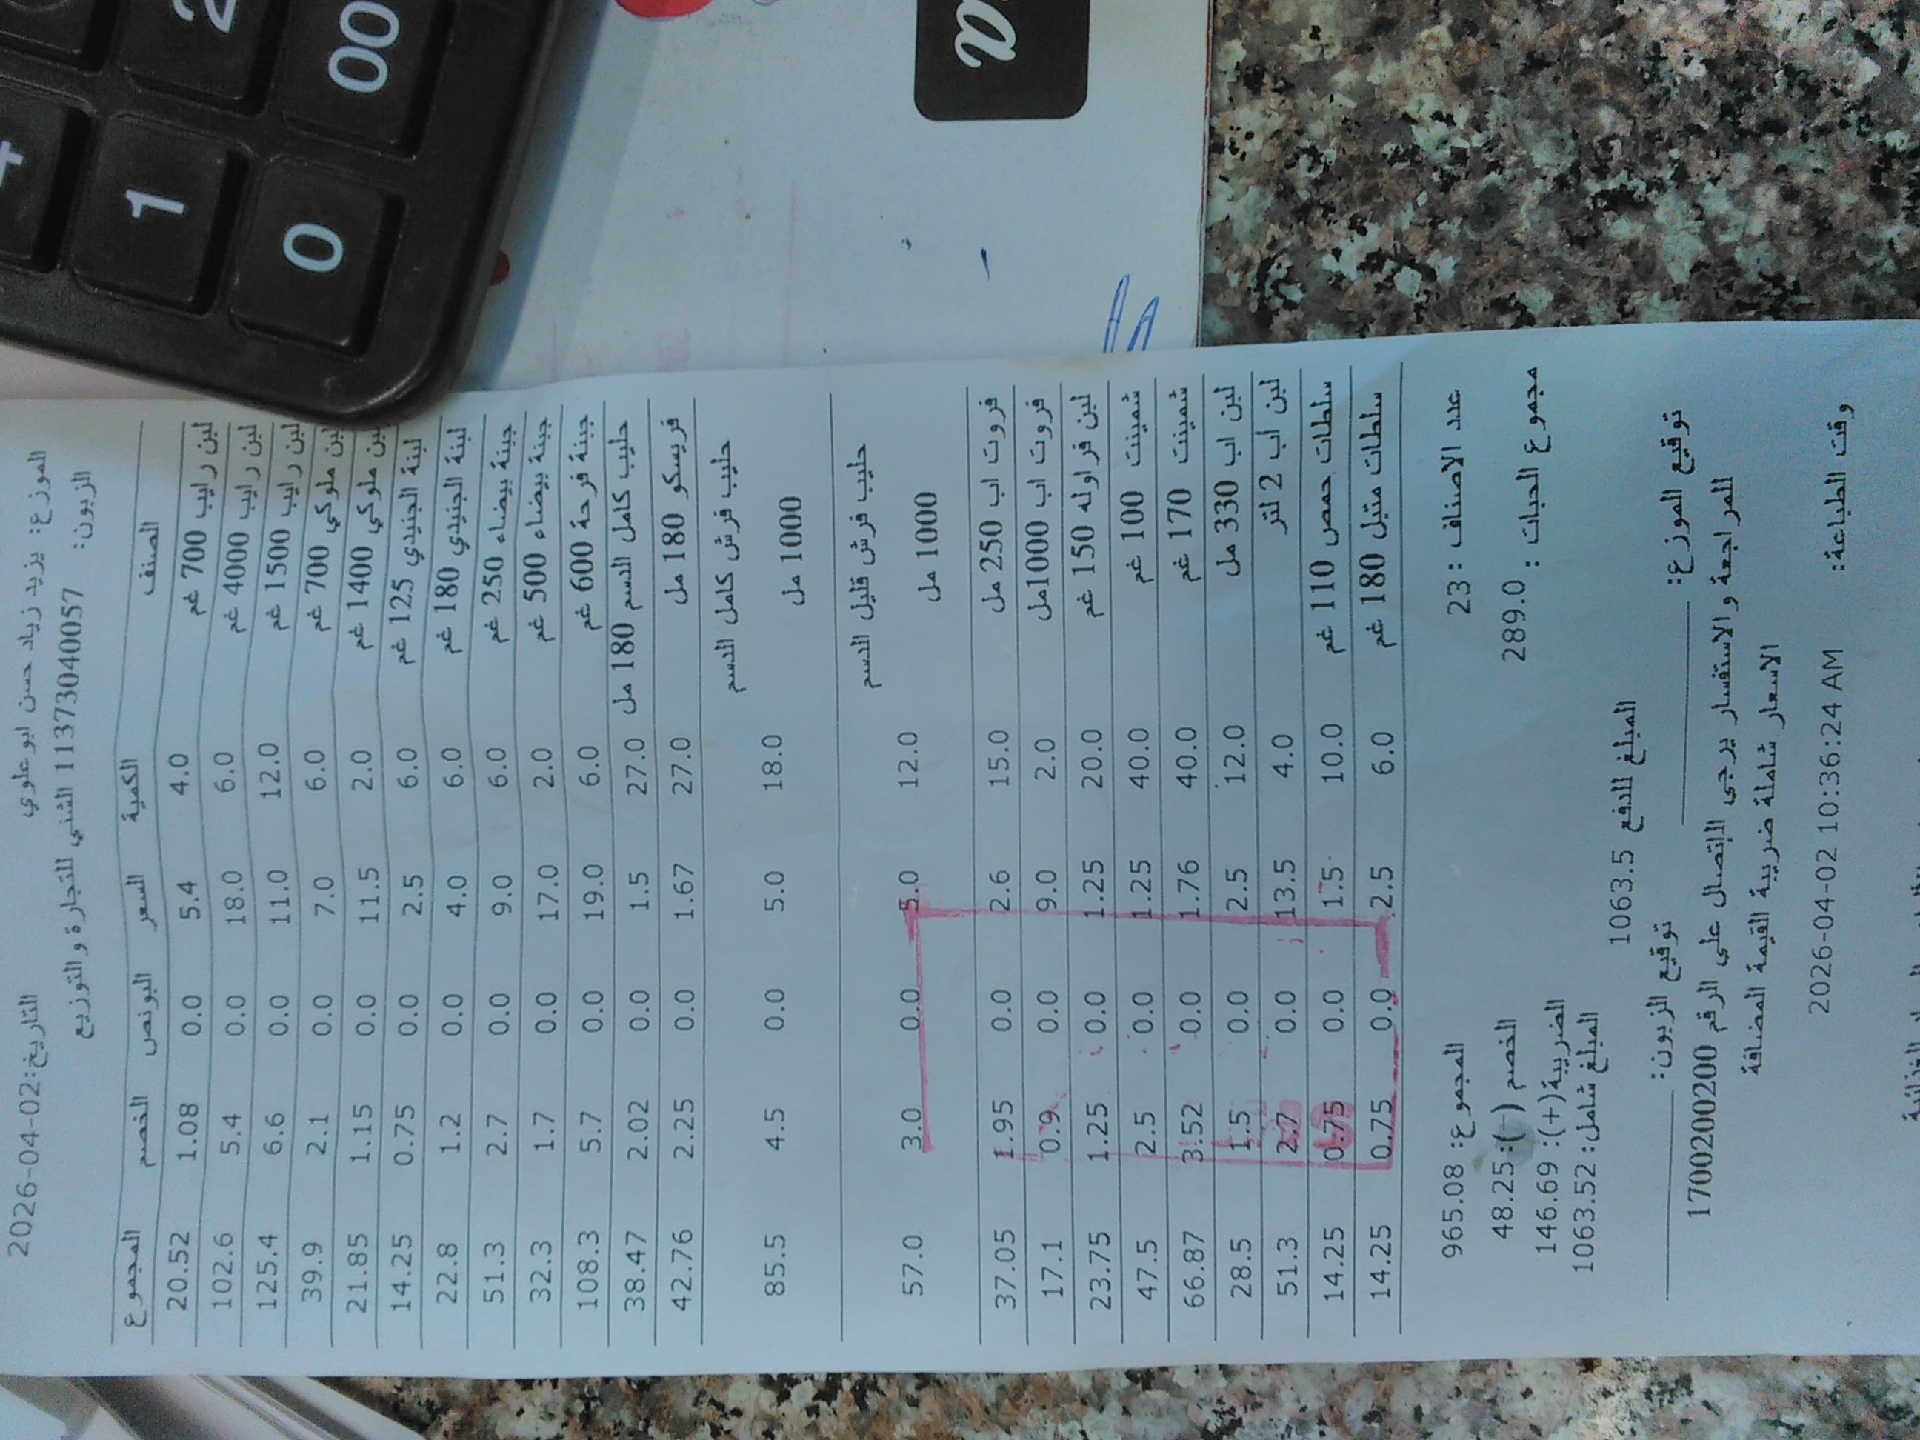 الموزع: يزيد زياد حسن ابو علوي التاريخ:02-04-2026
الزبون: 11373040057 الشني للتجارة والتوزيع
الصنف الكمية السعر البونص الخصم المجموع
لبن رايب 700 غم 4.0 5.4 0.0 1.08 20.52
لبن رايب 4000 غم 6.0 18.0 0.0 5.4 102.6
لبن رايب 1500 غم 12.0 11.0 0.0 6.6 125.4
لبن ملوكي 700 غم 6.0 7.0 0.0 2.1 39.9
لبن ملوكي 1400 غم 2.0 11.5 0.0 1.15 21.85
لبنة الجنيدي 125 غم 6.0 2.5 0.0 0.75 14.25
لبنة الجنيدي 180 غم 6.0 4.0 0.0 1.2 22.8
جبنة بيضاء 250 غم 6.0 9.0 0.0 2.7 51.3
جبنة بيضاء 500 غم 2.0 17.0 0.0 1.7 32.3
جبنة فرحة 600 غم 6.0 19.0 0.0 5.7 108.3
حليب كامل الدسم 180 مل 27.0 1.5 0.0 2.02 38.47
فريسكو 180 مل 27.0 1.67 0.0 2.25 42.76
حليب فرش كامل الدسم
1000 مل 18.0 5.0 0.0 4.5 85.5
حليب فرش قليل الدسم
1000 مل 12.0 5.0 0.0 3.0 57.0
فروت اب 250 مل 15.0 2.6 0.0 1.95 37.05
فروت اب 1000مل 2.0 9.0 0.0 0.9 17.1
لبن فراوله 150 غم 20.0 1.25 0.0 1.25 23.75
شمينت 100 غم 40.0 1.25 0.0 2.5 47.5
شمينت 170 غم 40.0 1.76 0.0 3.52 66.87
لبن اب 330 مل 12.0 2.5 0.0 1.5 28.5
لبن اب 2 لتر 4.0 13.5 0.0 2.7 51.3
سلطات حمص 110 غم 10.0 1.5 0.0 0.75 14.25
سلطات متبل 180 غم 6.0 2.5 0.0 0.75 14.25
عدد الاصناف : 23 المجموع: 965.08
مجموع الحبات : 289.0 الخصم (-): 48.25
الضريبة(+): 146.69
المبلغ شامل: 1063.52
المبلغ للدفع 1063.5
توقيع الموزع: توقيع الزبون:
للمراجعة والاستفسار يرجى الاتصال على الرقم 1700200200
الاسعار شاملة ضريبة القيمة المضافة
وقت الطباعة: 2026-04-02 10:36:24 AM
1
2
0
00
a